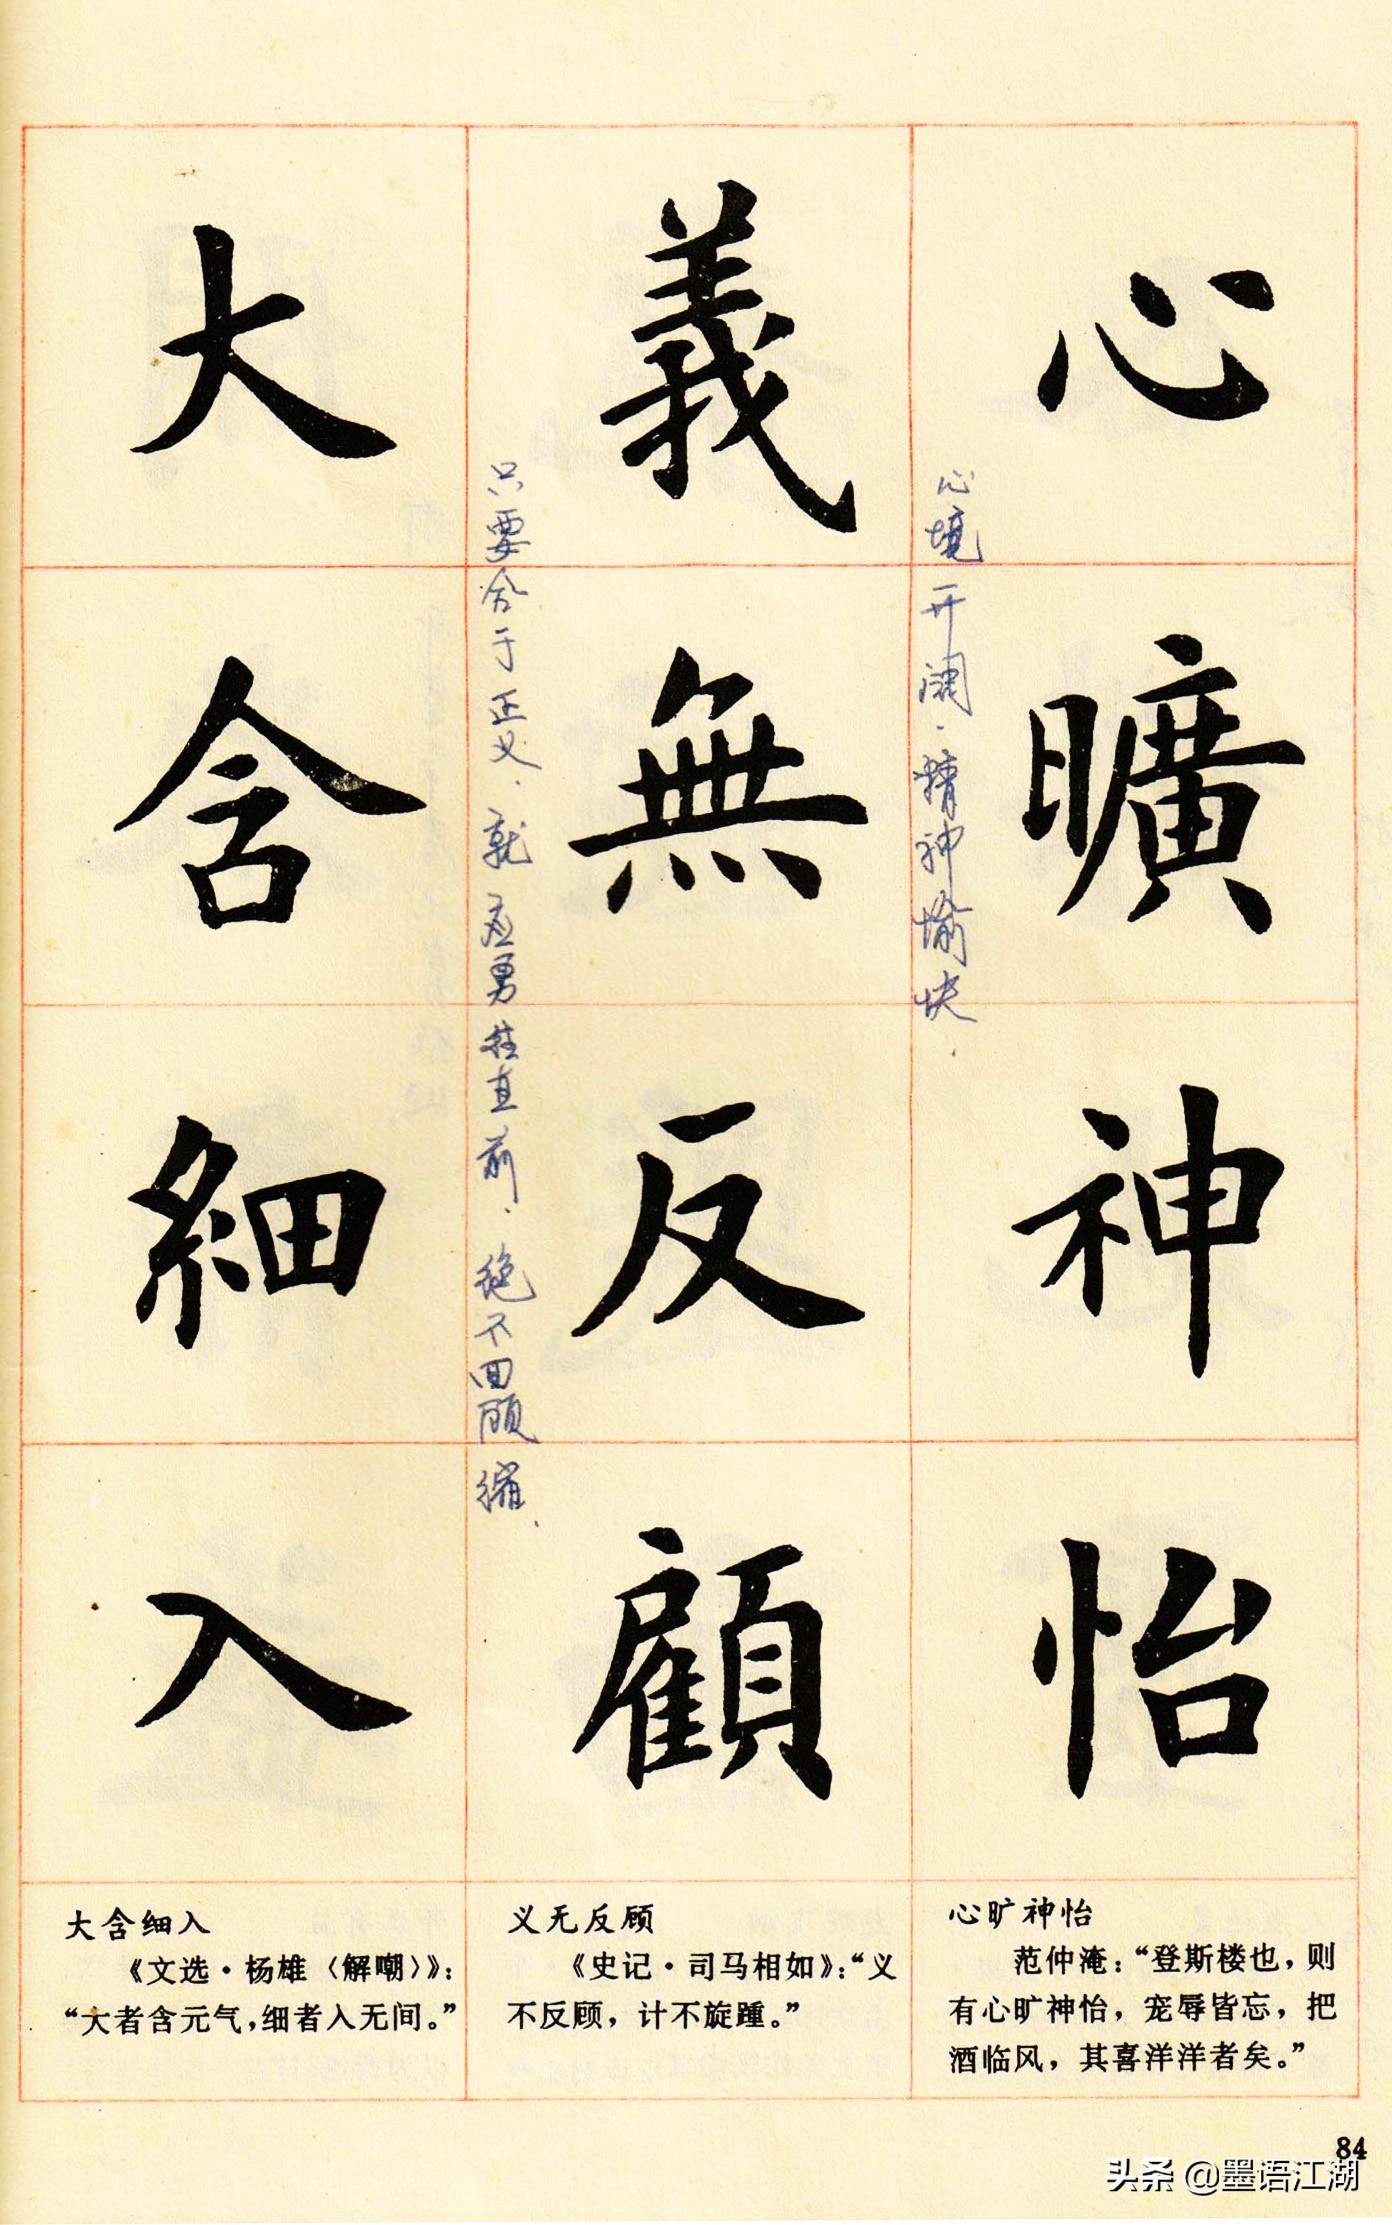 心曠神怡
心境开阔.精神愉快.
義無反顧
只要合于正义.就应勇往直前.绝不回顾缩.
大含細入
心旷神怡
范仲淹：“登斯楼也，则
有心旷神怡，宠辱皆忘，把
酒临风，其喜洋洋者矣。”
义无反顾
《史记·司马相如》：“义
不反顾，计不旋踵。”
大含细入
《文选·杨雄〈解嘲〉》：
“大者含元气，细者入无间。”
84
头条 @墨语江湖